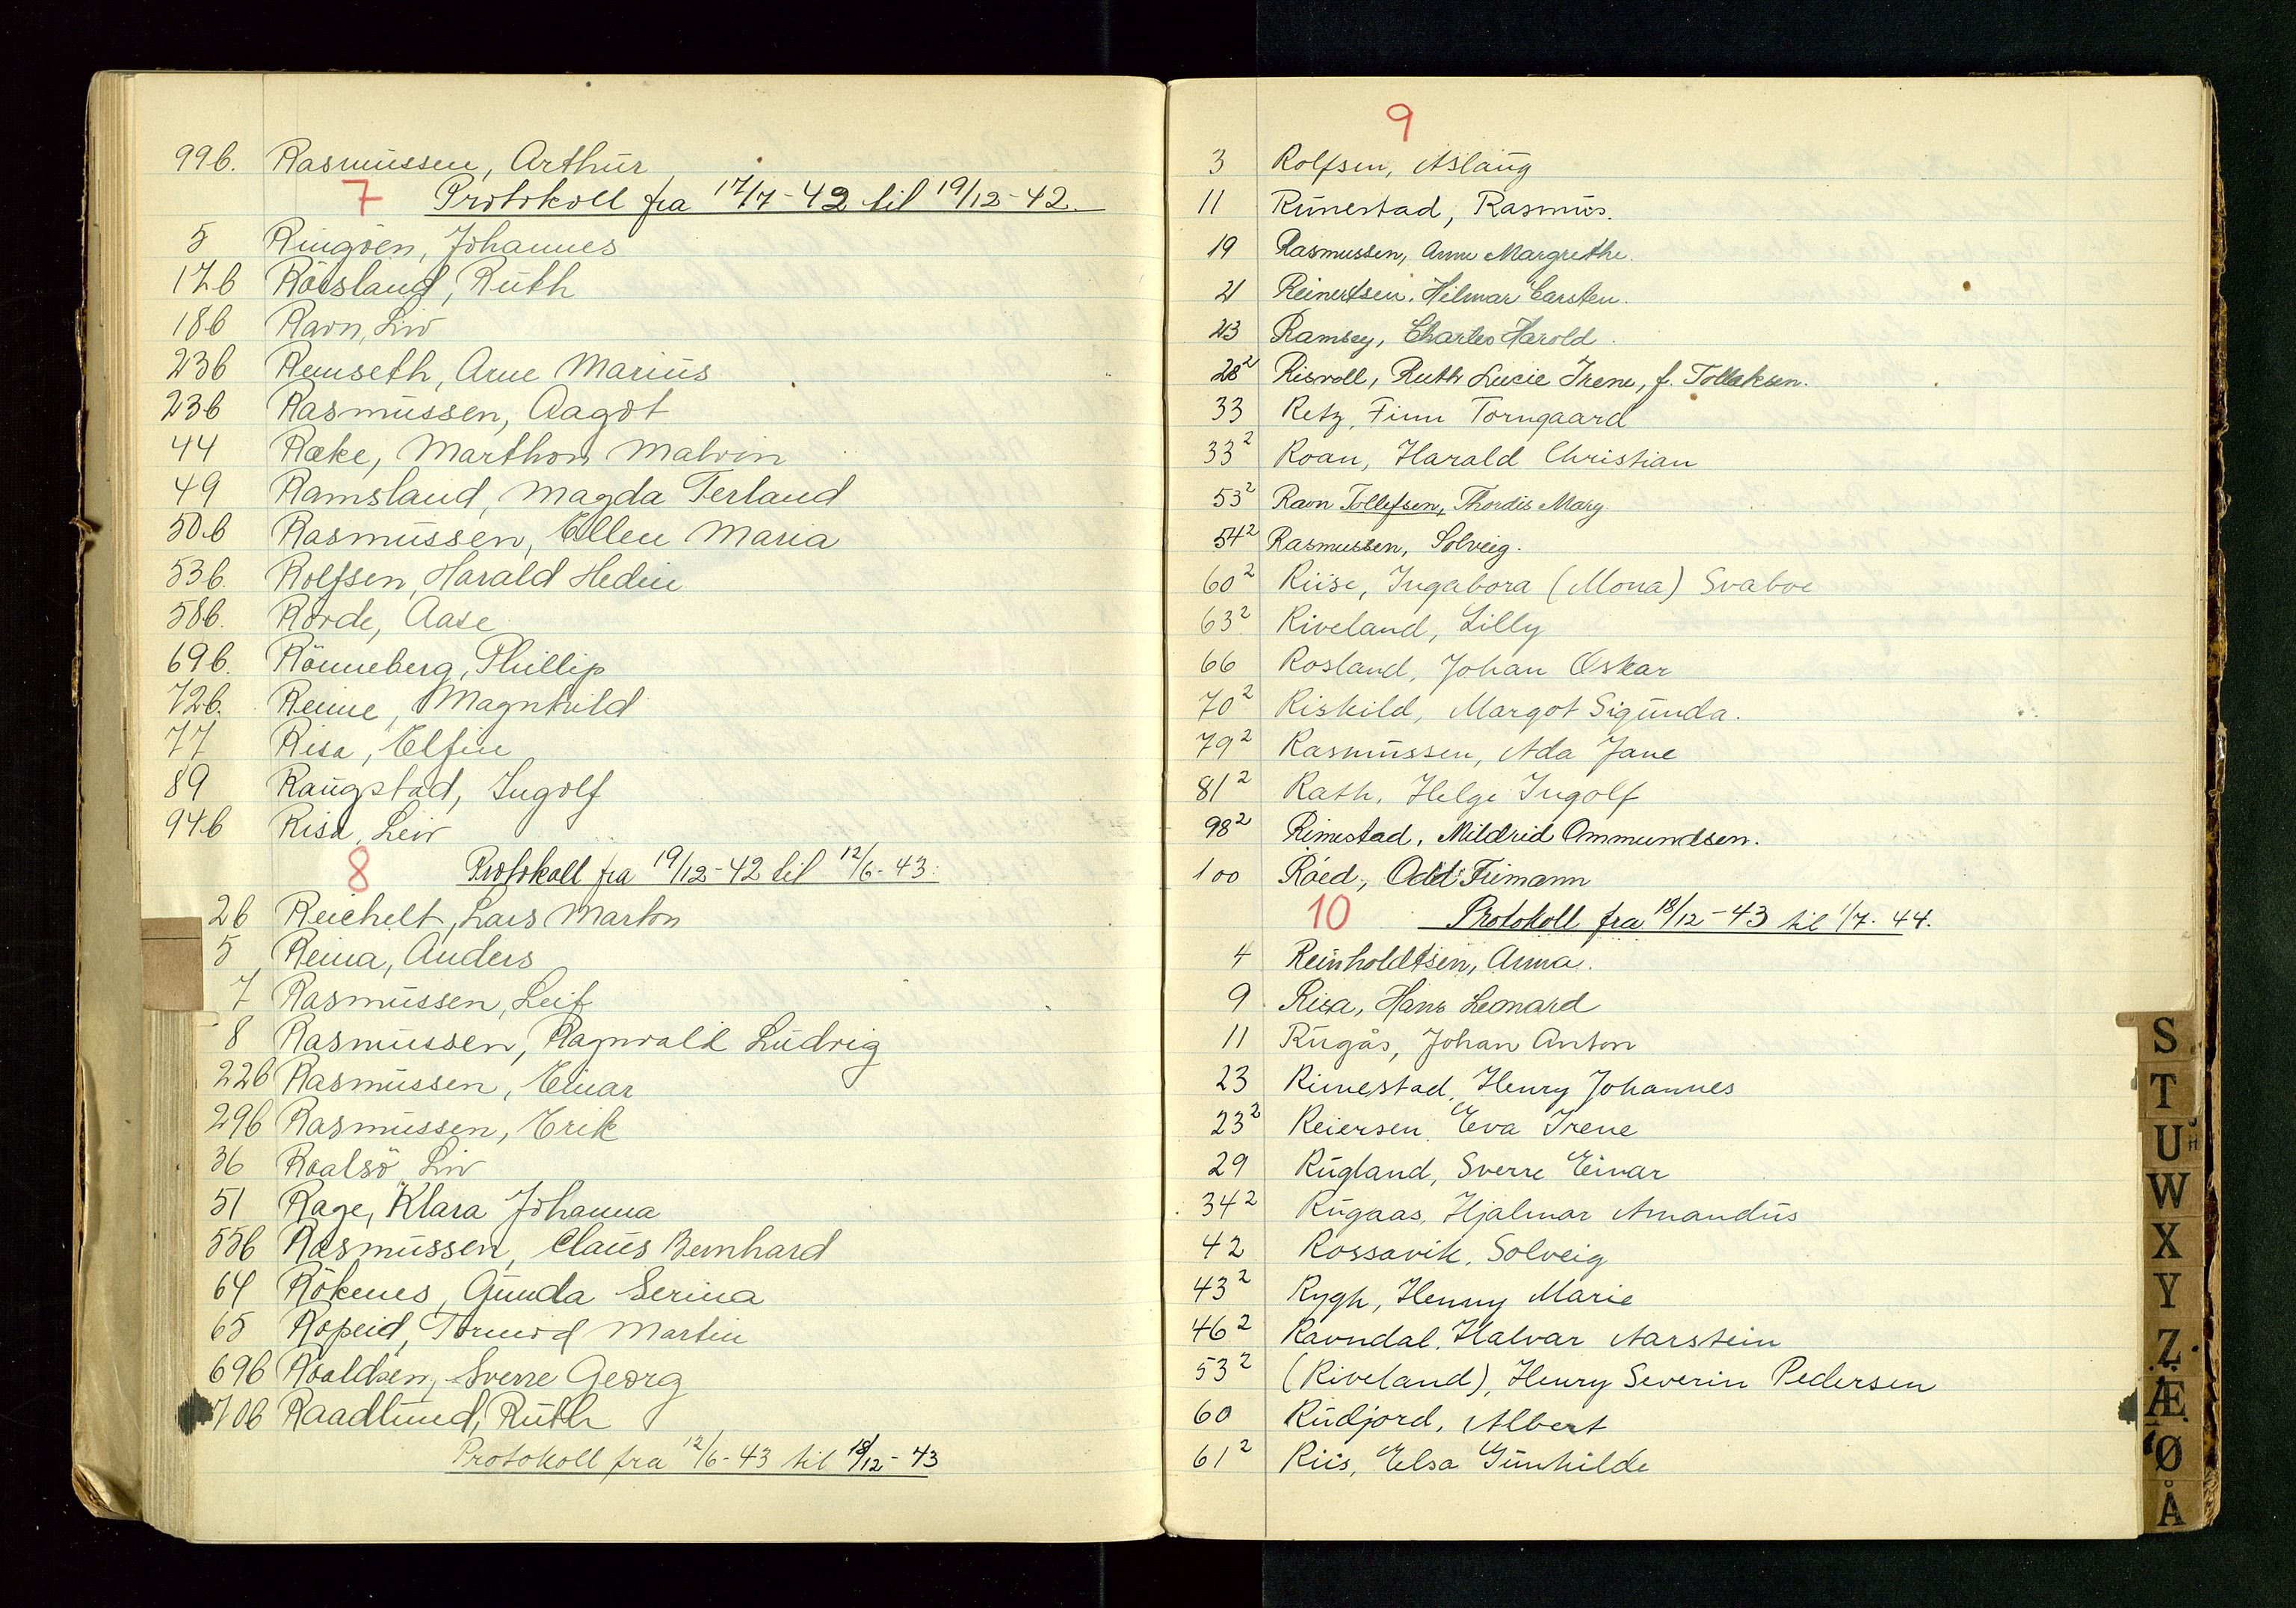 99b. Rasmussen, Arthur
7 Protokoll fra 17/7-42 til 19/12-42.
5 Ringöen, Johannes
17b Röisland, Ruth
18b Ravn, Liv
23b Remseth, Arne Marius
23b Rasmussen, Aagot
44 Ræke, Marthon Malvin
49 Ramsland, Magda Terland
50b Rasmussen, Ellen Maria
53b. Rolfsen, Harald Hedin
58b. Rörde, Aase
69b. Rönneberg, Phillip
72b. Reime, Magnhild
77 Risa, Elfin
89 Raugstad, Ingolf
94b Risa, Leiv
8 Protokoll fra 19/12-42 til 12/6-43.
2b Reichelt, Lars Marton
5 Reina, Anders
7 Rasmussen, Leif
8 Rasmussen, Ragnvald Ludvig
22b Rasmussen, Einar
29b Rasmussen, Erik
36 Roalsö, Liv
51 Rage, Klara Johanna
55b Rasmussen, Claus Bernhard
64 Rökenes, Gunda Serina
65 Ropeid, Tormod Martin
69b Roaldsen, Sverre Georg
70b Raadlund, Ruth
Protokoll fra 12/6-43 til 18/12-43
9
3 Rolfsen, Aslaug
11 Runestad, Rasmus.
19 Rasmussen, Anne Margrethe.
21 Reinertsen, Hilmar Carsten.
23 Ramsey, Charles Harold.
28² Risvoll, Ruth Lucie Irene, f. Tollaksen.
33 Retz, Finn Torngaard
33² Roan, Harald Christian
53² Ravn Tollefsen, Thordis Mary
54² Rasmussen, Solveig.
60² Riise, Ingabora (Mona) Svaboe
63² Riveland, Lilly
66 Rosland, Johan Oskar
70² Riskild, Margot Sigunda.
79² Rasmussen, Ada Jane
81² Rath, Helge Ingolf
98² Rimestad, Mildrid Ommundsen.
100 Röed, Odd Finmann
10 Protokoll fra 18/12-43 til 1/7-44.
4 Reinholdtsen, Anna.
9 Risa, Hans Leonard
11 Rugås, Johan Anton
23 Rimestad, Henry Johannes
23² Reiersen, Eva Irene
29 Rugland, Sverre Einar
34² Rugaas, Hjalmar Amandus
42 Rossavik, Solveig
43² Rygh, Henny Marie
46² Ravndal, Halvar Aarstein
53² (Riveland), Henry Severin Pedersen
60 Rudjord, Albert
61² Riis, Elsa Gunhilde
S
T
U
W
X
Y
Z
Æ
Ø
Å